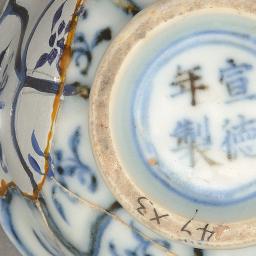 宣德
年製
47 X3